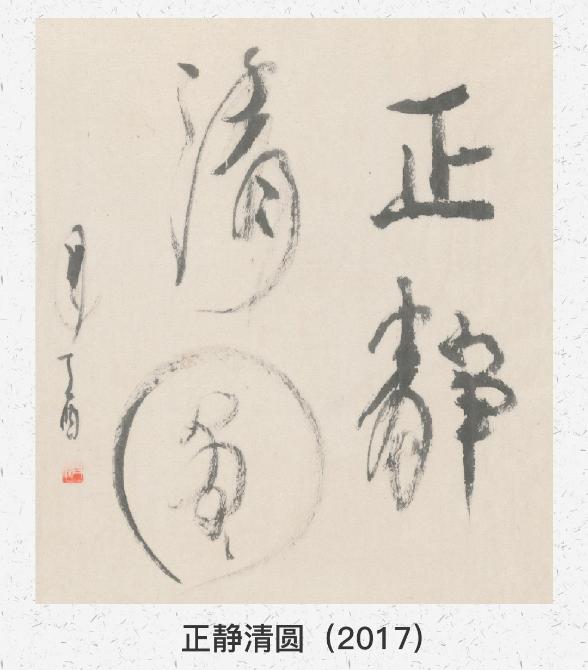 正静
清圆
丁酉
正静清圆（2017）